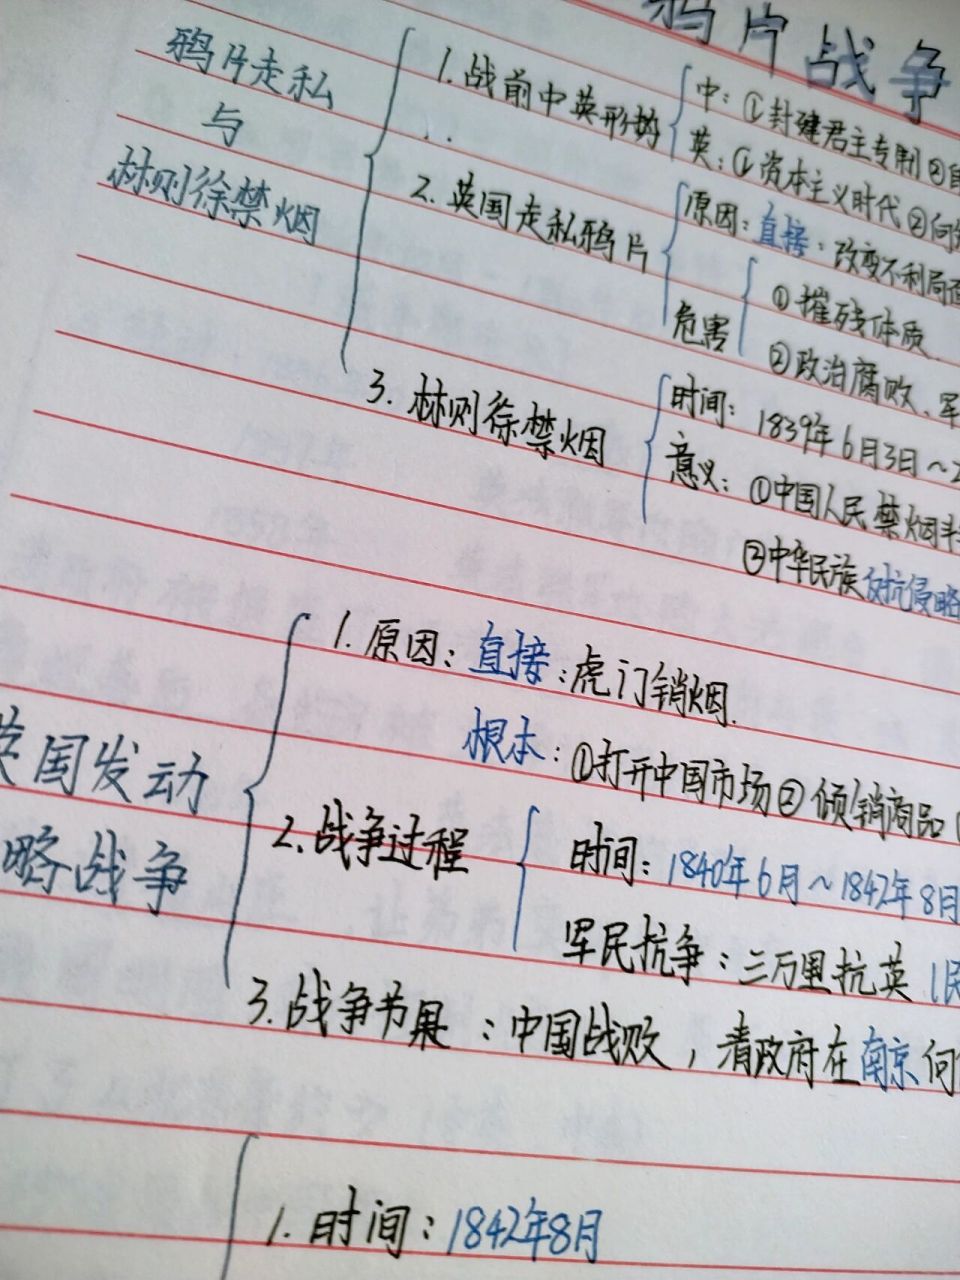 鸦片战争
鸦片走私
与
林则徐禁烟
1.战前中英形势
中：①封建君主专制②
英：①资本主义时代②向
2.英国走私鸦片
原因：直接：改变不利局面
危害
①摧残体质
②政治腐败、军
3.林则徐禁烟
时间：1839年6月3日～2
意义：①中国人民禁烟斗
②中华民族反抗侵略
英国发动
略战争
1.原因：直接：虎门销烟.
根本：①打开中国市场②倾销商品
2.战争过程
时间：1840年6月～1842年8月
军民抗争：三万里抗英
3.战争节果：中国战败，清政府在南京向
1.时间：1842年8月